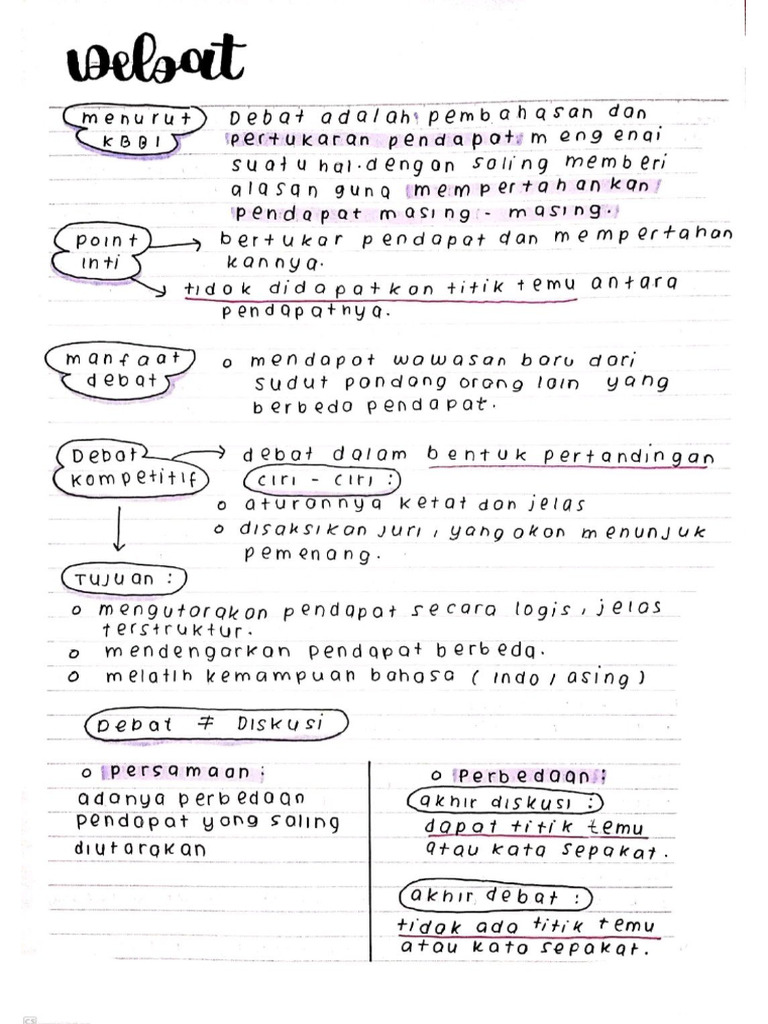 Debat
menurut KBBI
Debat adalah pembahasan dan
pertukaran pendapat mengenai
suatu hal. dengan saling memberi
alasan guna mempertahankan
pendapat masing - masing.
point inti
bertukar pendapat dan mempertahan
kannya.
tidak didapatkan titik temu antara
pendapatnya.
manfaat debat
mendapat wawasan baru dari
sudut pandang orang lain yang
berbeda pendapat.
Debat kompetitif
debat dalam bentuk pertandingan
ciri - ciri :
aturannya ketat dan jelas
disaksikan juri, yang akan menunjuk
pemenang.
Tujuan :
mengutarakan pendapat secara logis, jelas
terstruktur.
mendengarkan pendapat berbeda.
melatih kemampuan bahasa (indo / asing)
Debat ≠ Diskusi
persamaan :
adanya perbedaan
pendapat yang saling
diutarakan
Perbedaan :
akhir diskusi :
dapat titik temu
atau kata sepakat.
akhir debat :
tidak ada titik temu
atau kata sepakat.
CS